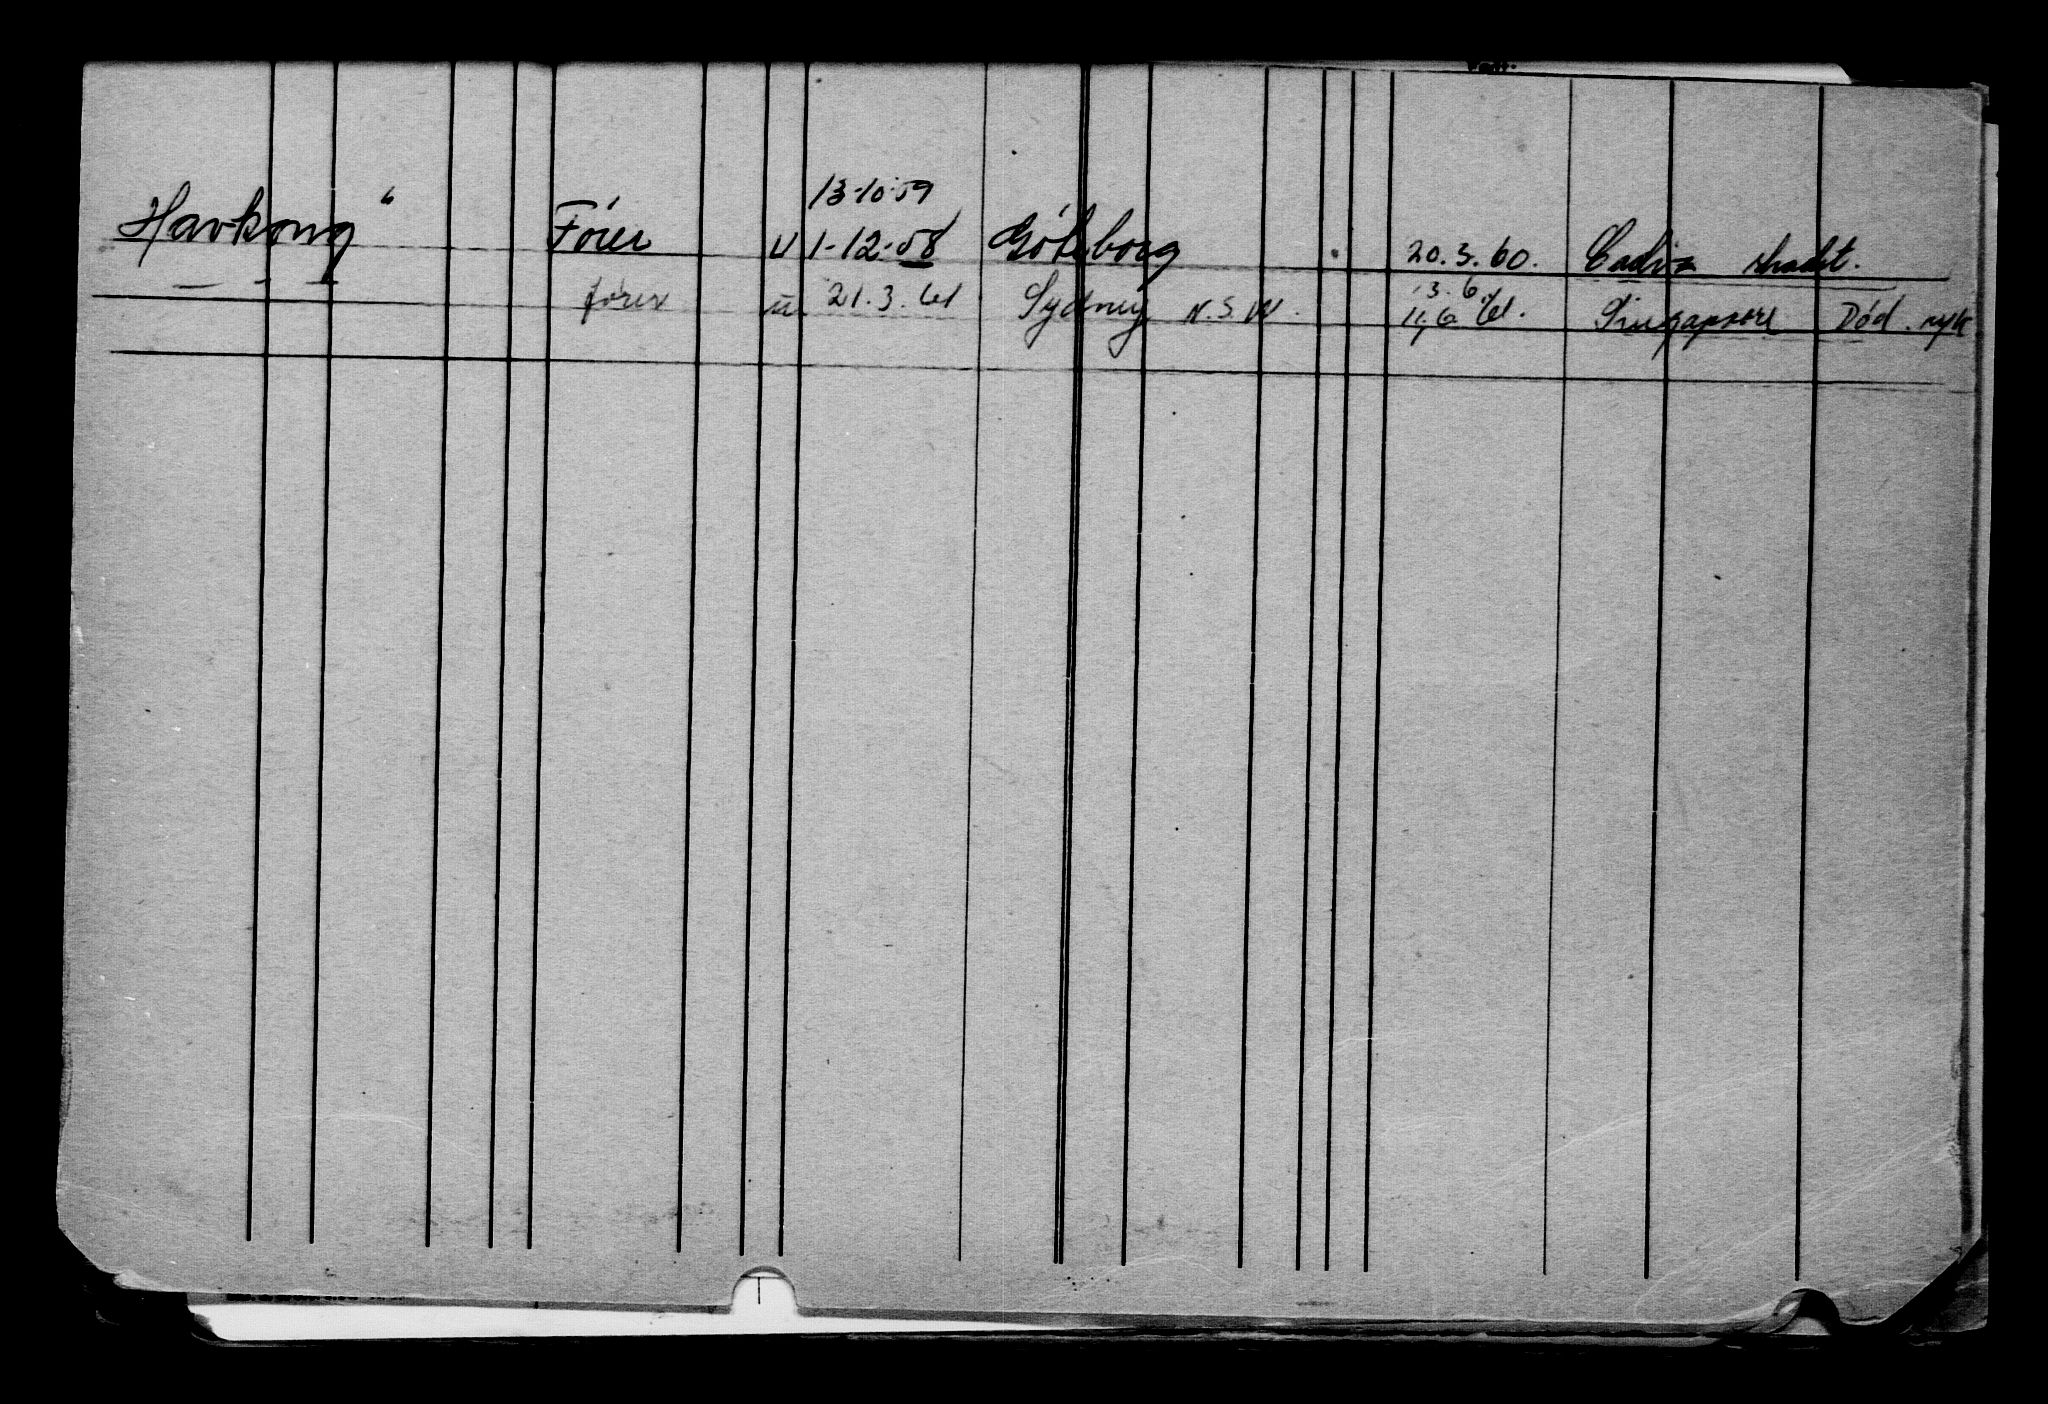 13-10-59
Havkong" Fører u 1-12-58 Göteborg 20.3.60. Cadiz
— " — fører u 21.3.61 Sydney N.S.W. 11.6.61. Singapore Død.
13.6